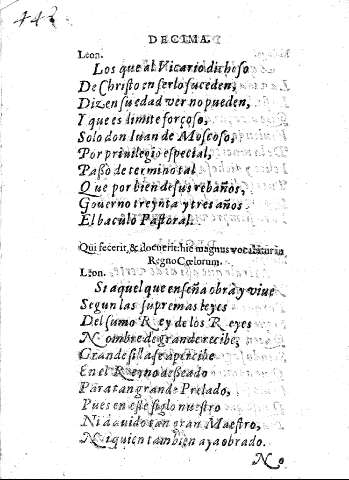 443
DECIMA.
Leon.
Los que al Vicario dichoso
De Christo en serlo suceden,
Dizen su edad ver no pueden,
Y que es limite forçoso,
Solo don Iuan de Moscoso,
Por priuilegio especial,
Passò de termino tal
Que por bien de sus rebaños,
Gouerno treynta y tres años
El baculo Pastoral.
Qui fecerit, & docuerit: hic magnus vocabitur in
Regno Cœlorum.
Leon.
Si aquel que enseña obra y viue
Segun las supremas leyes
Del sumo Rey de los Reyes
Nombre de grande recibe,
Grande silla se apercibe
En el Reyno desseado
Para tan grande Prelado,
Pues en este siglo nuestro
Ni a auido tan gran Maestro,
Ni quien tambien aya obrado.
No